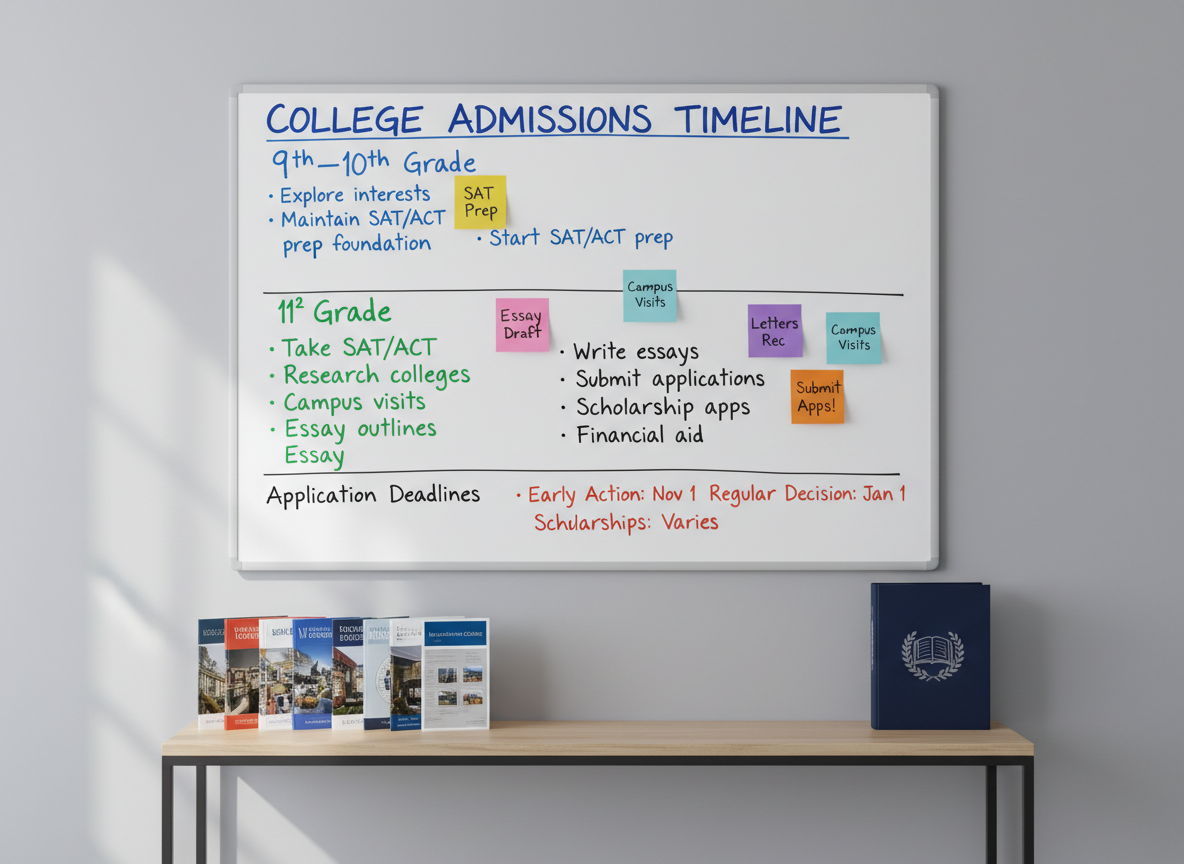 COLLEGE ADMISSIONS TIMELINE
9th—10th Grade
• Explore interests
• Maintain SAT/ACT
prep foundation
SAT
Prep
• Start SAT/ACT prep
11² Grade
• Take SAT/ACT
• Research colleges
• Campus visits
• Essay outlines
Essay
Essay
Draft
Campus
Visits
• Write essays
• Submit applications
• Scholarship apps
• Financial aid
Letters
Rec
Campus
Visits
Submit
Apps!
Application Deadlines
• Early Action: Nov 1 Regular Decision: Jan 1
Schularships: Varies